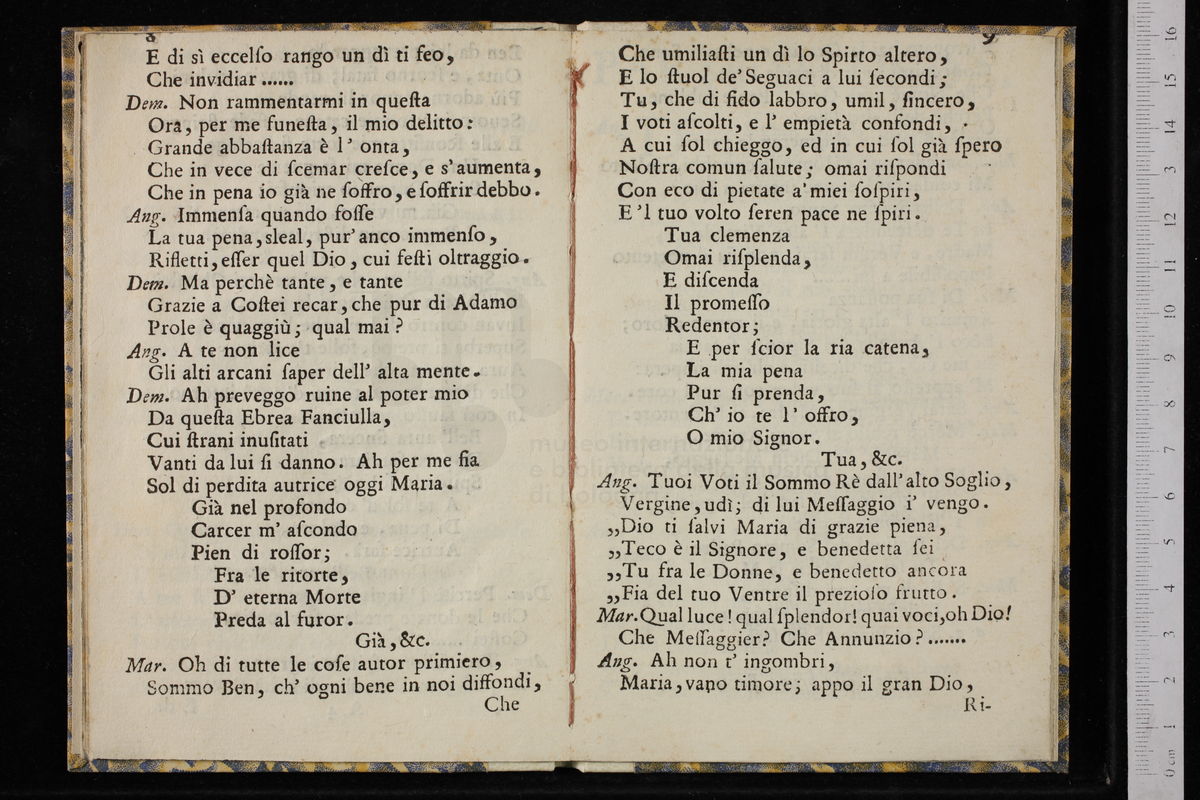 8
E di sì eccelſo rango un dì ti feo,
Che invidiar......
Dem. Non rammentarmi in queſta
Ora, per me funeſta, il mio delitto:
Grande abbaſtanza è l' onta,
Che in vece di ſcemar creſce, e s'aumenta,
Che in pena io già ne ſoffro, e ſoffrir debbo.
Ang. Immenſa quando foſſe
La tua pena, sleal, pur' anco immenſo,
Rifletti, eſſer quel Dio, cui feſti oltraggio.
Dem. Ma perchè tante, e tante
Grazie a Coſtei recar, che pur di Adamo
Prole è quaggiù; qual mai?
Ang. A te non lice
Gli alti arcani ſaper dell' alta mente.
Dem. Ah preveggo ruine al poter mio
Da queſta Ebrea Fanciulla,
Cui ſtrani inuſitati
Vanti da lui ſi danno. Ah per me ſia
Sol di perdita autrice oggi Maria.
Già nel profondo
Carcer m' aſcondo
Pien di roſſor;
Fra le ritorte,
D' eterna Morte
Preda al furor.
Già, &c.
Mar. Oh di tutte le coſe autor primiero,
Sommo Ben, ch' ogni bene in noi diffondi,
Che
9
Che umiliaſti un dì lo Spirto altero,
E lo ſtuol de' Seguaci a lui ſecondi;
Tu, che di fido labbro, umil, ſincero,
I voti aſcolti, e l' empietà confondi,
A cui ſol chieggo, ed in cui ſol già ſpero
Noſtra comun ſalute; omai riſpondi
Con eco di pietate a' miei ſoſpiri,
E 'l tuo volto ſeren pace ne ſpiri.
Tua clemenza
Omai riſplenda,
E diſcenda
Il promeſſo
Redentor;
E per ſcior la ria catena,
La mia pena
Pur ſi prenda,
Ch' io te l' offro,
O mio Signor.
Tua, &c.
Ang. Tuoi Voti il Sommo Rè dall' alto Soglio,
Vergine, udì; di lui Meſſaggio i' vengo.
„Dio ti ſalvi Maria di grazie piena,
„Teco è il Signore, e benedetta ſei
„Tu fra le Donne, e benedetto ancora
„Fia del tuo Ventre il prezioſo frutto.
Mar. Qual luce! qual ſplendor! quai voci, oh Dio!
Che Meſſaggier? Che Annunzio?.......
Ang. Ah non t' ingombri,
Maria, vano timore; appo il gran Dio,
Ri-